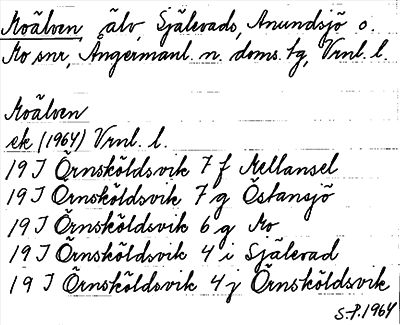 Moälven, älv, Själevads, Anundsjö o.
Mo snr, Ångermanl. n. doms. tg, Vrnl. l.
Moälven
ek (1964) Vrnl. l.
19 J Örnsköldsvik 7 f Mellansel
19 J Örnsköldsvik 7 g Östansjö
19 J Örnsköldsvik 6 g Mo
19 J Örnsköldsvik 4 i Själevad
19 J Örnsköldsvik 4 j Örnsköldsvik
S-P. 1964